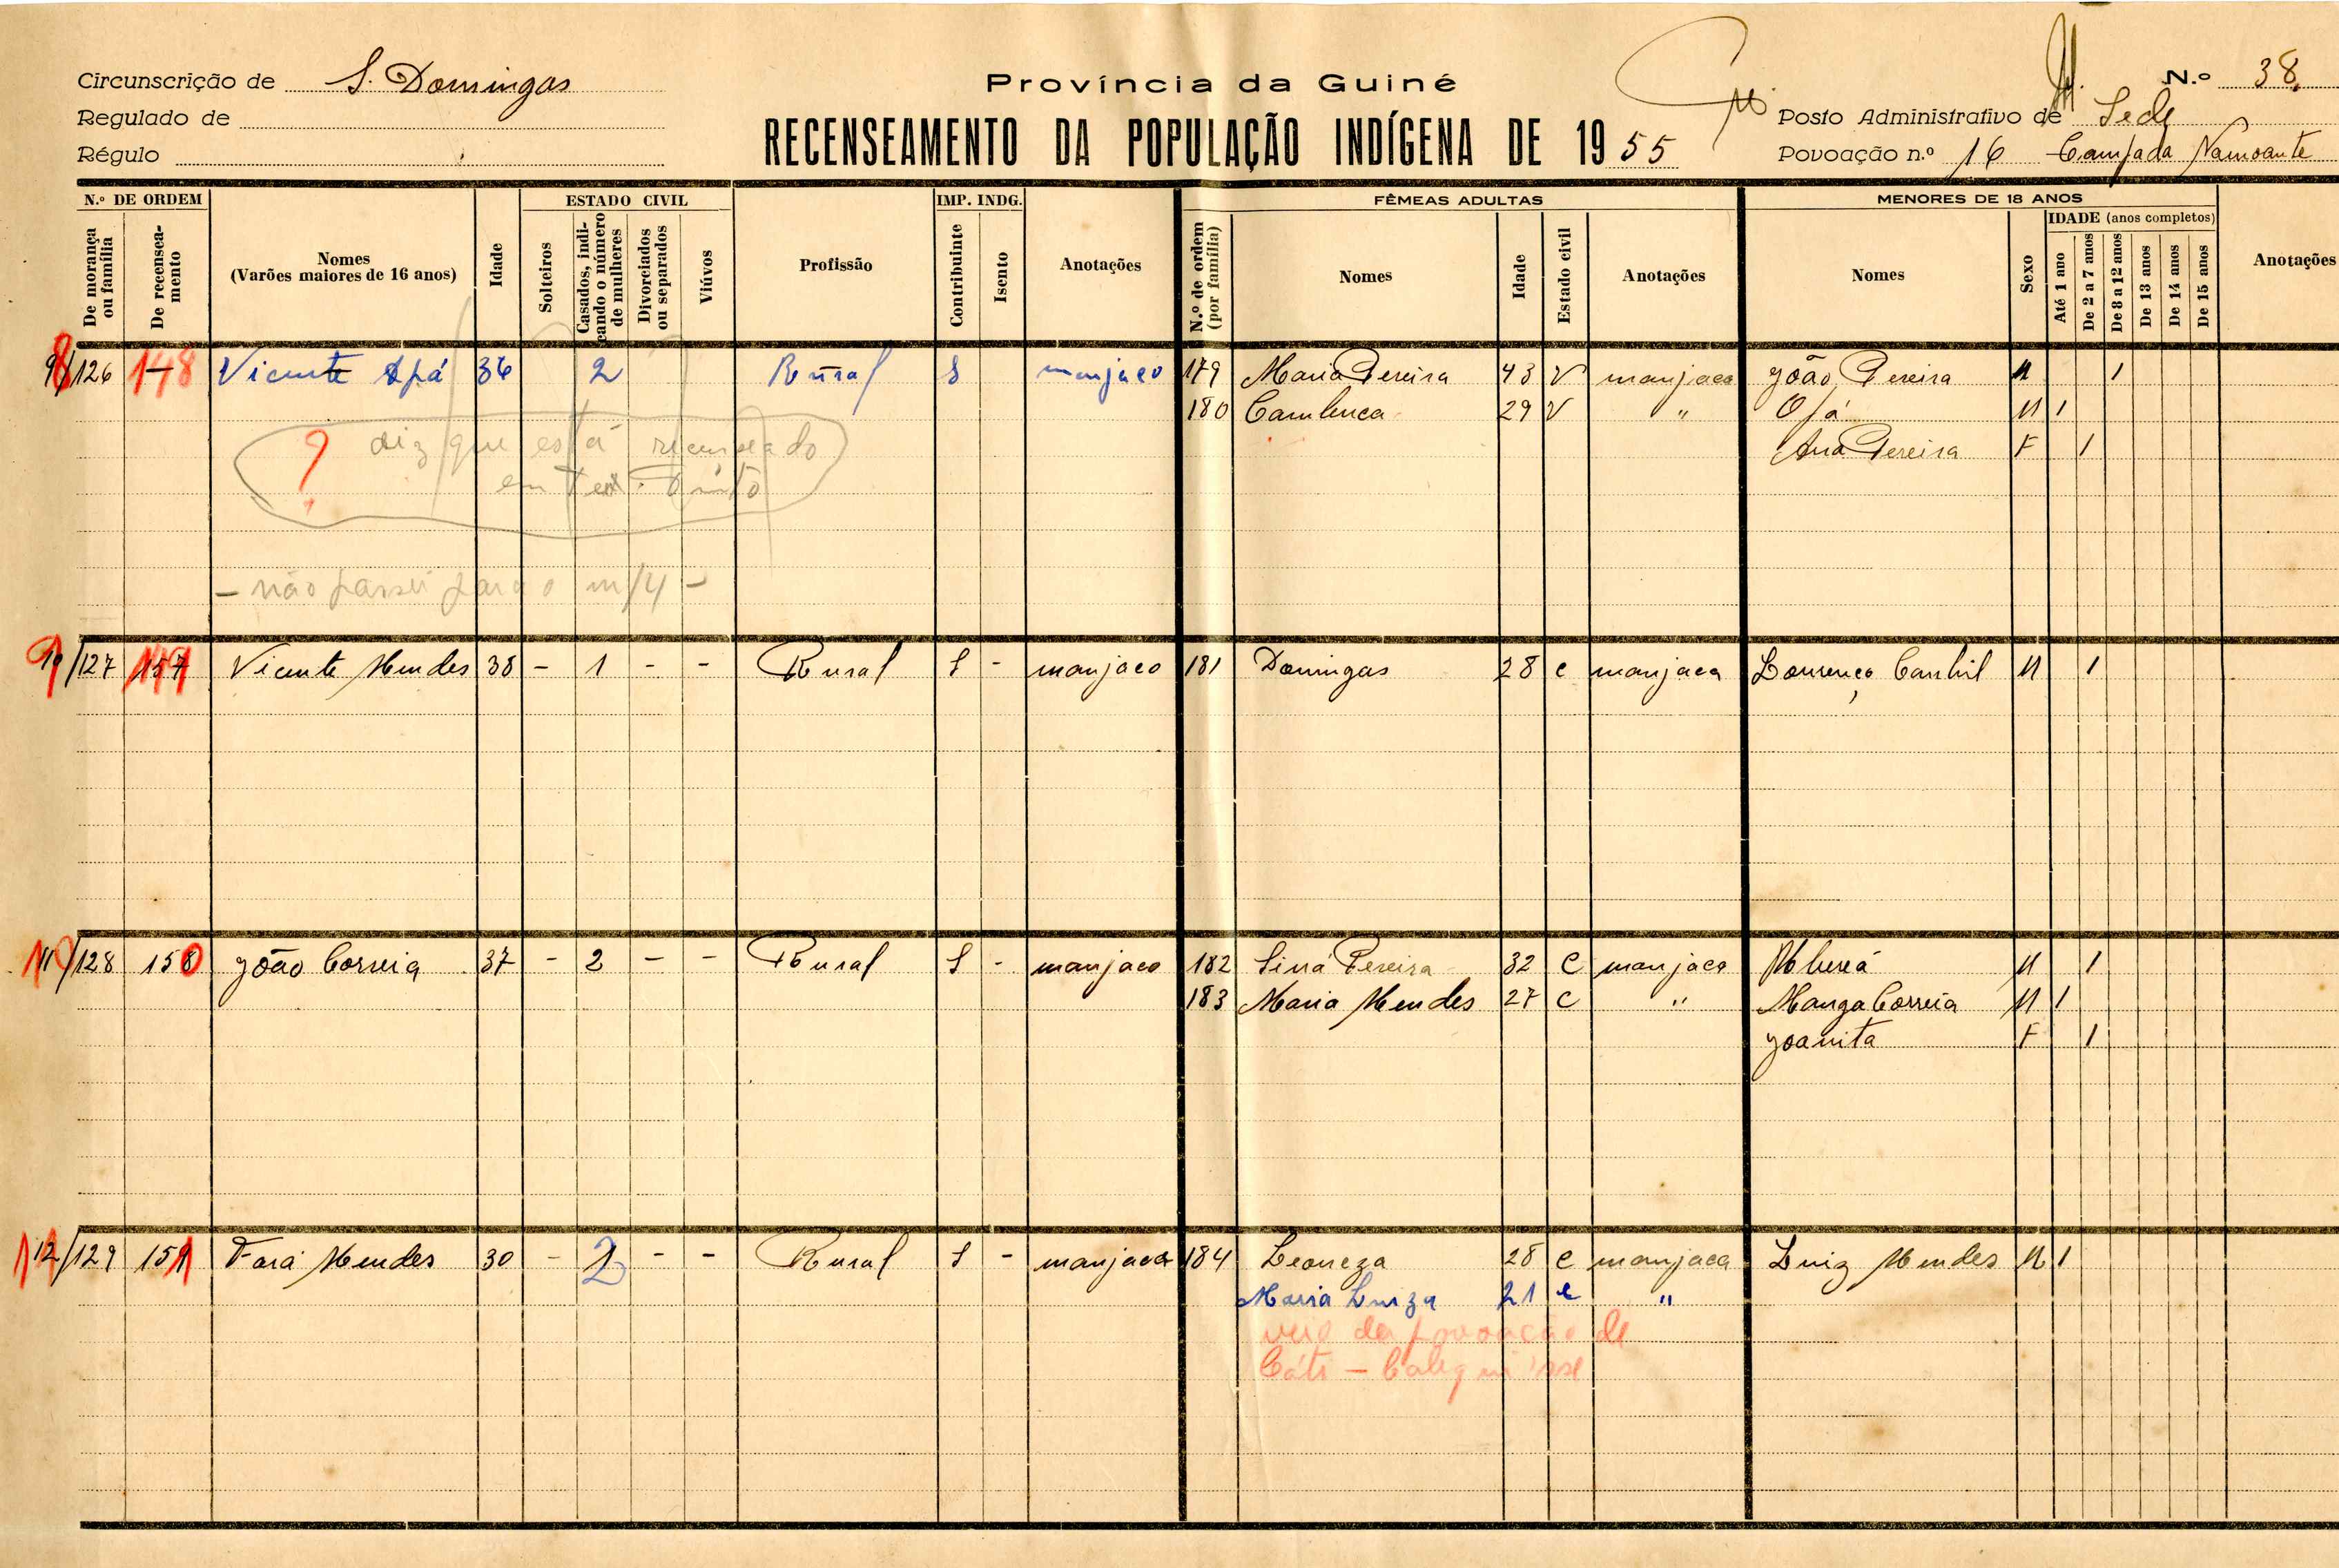 Circunscrição de S. Domingos
Regulado de
Régulo
Província da Guiné
RECENSEAMENTO DA POPULAÇÃO INDÍGENA DE 1955
N.º 38
Posto Administrativo de Sede
Povoação n.º 16 Campada Namoante
N.º DE ORDEM
De morança ou família
De recenseamento
Nomes
(Varões maiores de 16 anos)
Idade
ESTADO CIVIL
Solteiros
Casados, indicando o número de mulheres
Divorciados ou separados
Viúvos
Profissão
IMP. INDG.
Contribuinte
Isento
Anotações
FÊMEAS ADULTAS
N.º de ordem (por família)
Nomes
Idade
Estado civil
Anotações
MENORES DE 18 ANOS
Nomes
Sexo
IDADE (anos completos)
Até 1 ano
De 2 a 7 anos
De 8 a 12 anos
De 13 anos
De 14 anos
De 15 anos
Anotações
8/126 148 Vicente Apá 36 2 Rural S manjaco 179 Maria Pereira 43 V manjaca João Pereira M 1
180 29 V " Ofá M 1
Ana Pereira F 1
? diz que está recenseado
em
- não passei para o m/4 -
9/127 149 Vicente Mendes 38 - 1 - - Rural S - manjaco 181 Domingas 28 c manjaca Lourenço Canhil M 1
10/128 150 João Correia 37 - 2 - - Rural S - manjaco 182 Siná Pereira 32 C manjaca M 1
183 Maria Mendes 27 C " Manga Correia M 1
Joanita F 1
11/129 151 Fará Mendes 30 - 2 - - Rural S - manjaco 184 Leoneza 28 c manjaca Luiz Mendes M 1
Maria Luiza 21 c "
veio da povoação de